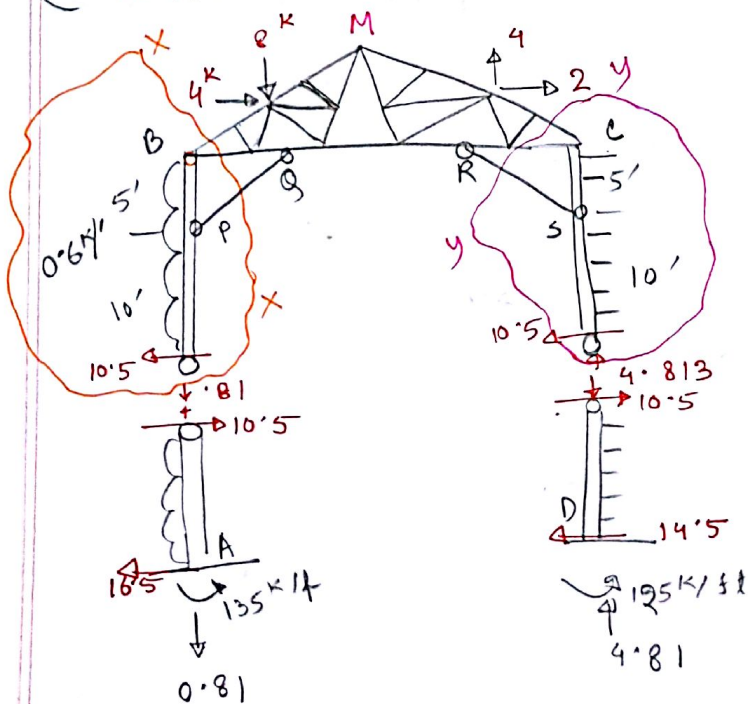 X
M
8 K
4
4 K
2
y
B
C
5'
5'
Q
R
P
S
0.6 K/'
y
10'
10'
X
10.5
10.5
.81
4.813
10.5
10.5
D
14.5
A
16.5
135 K/f
125 K/ft
4.81
0.81